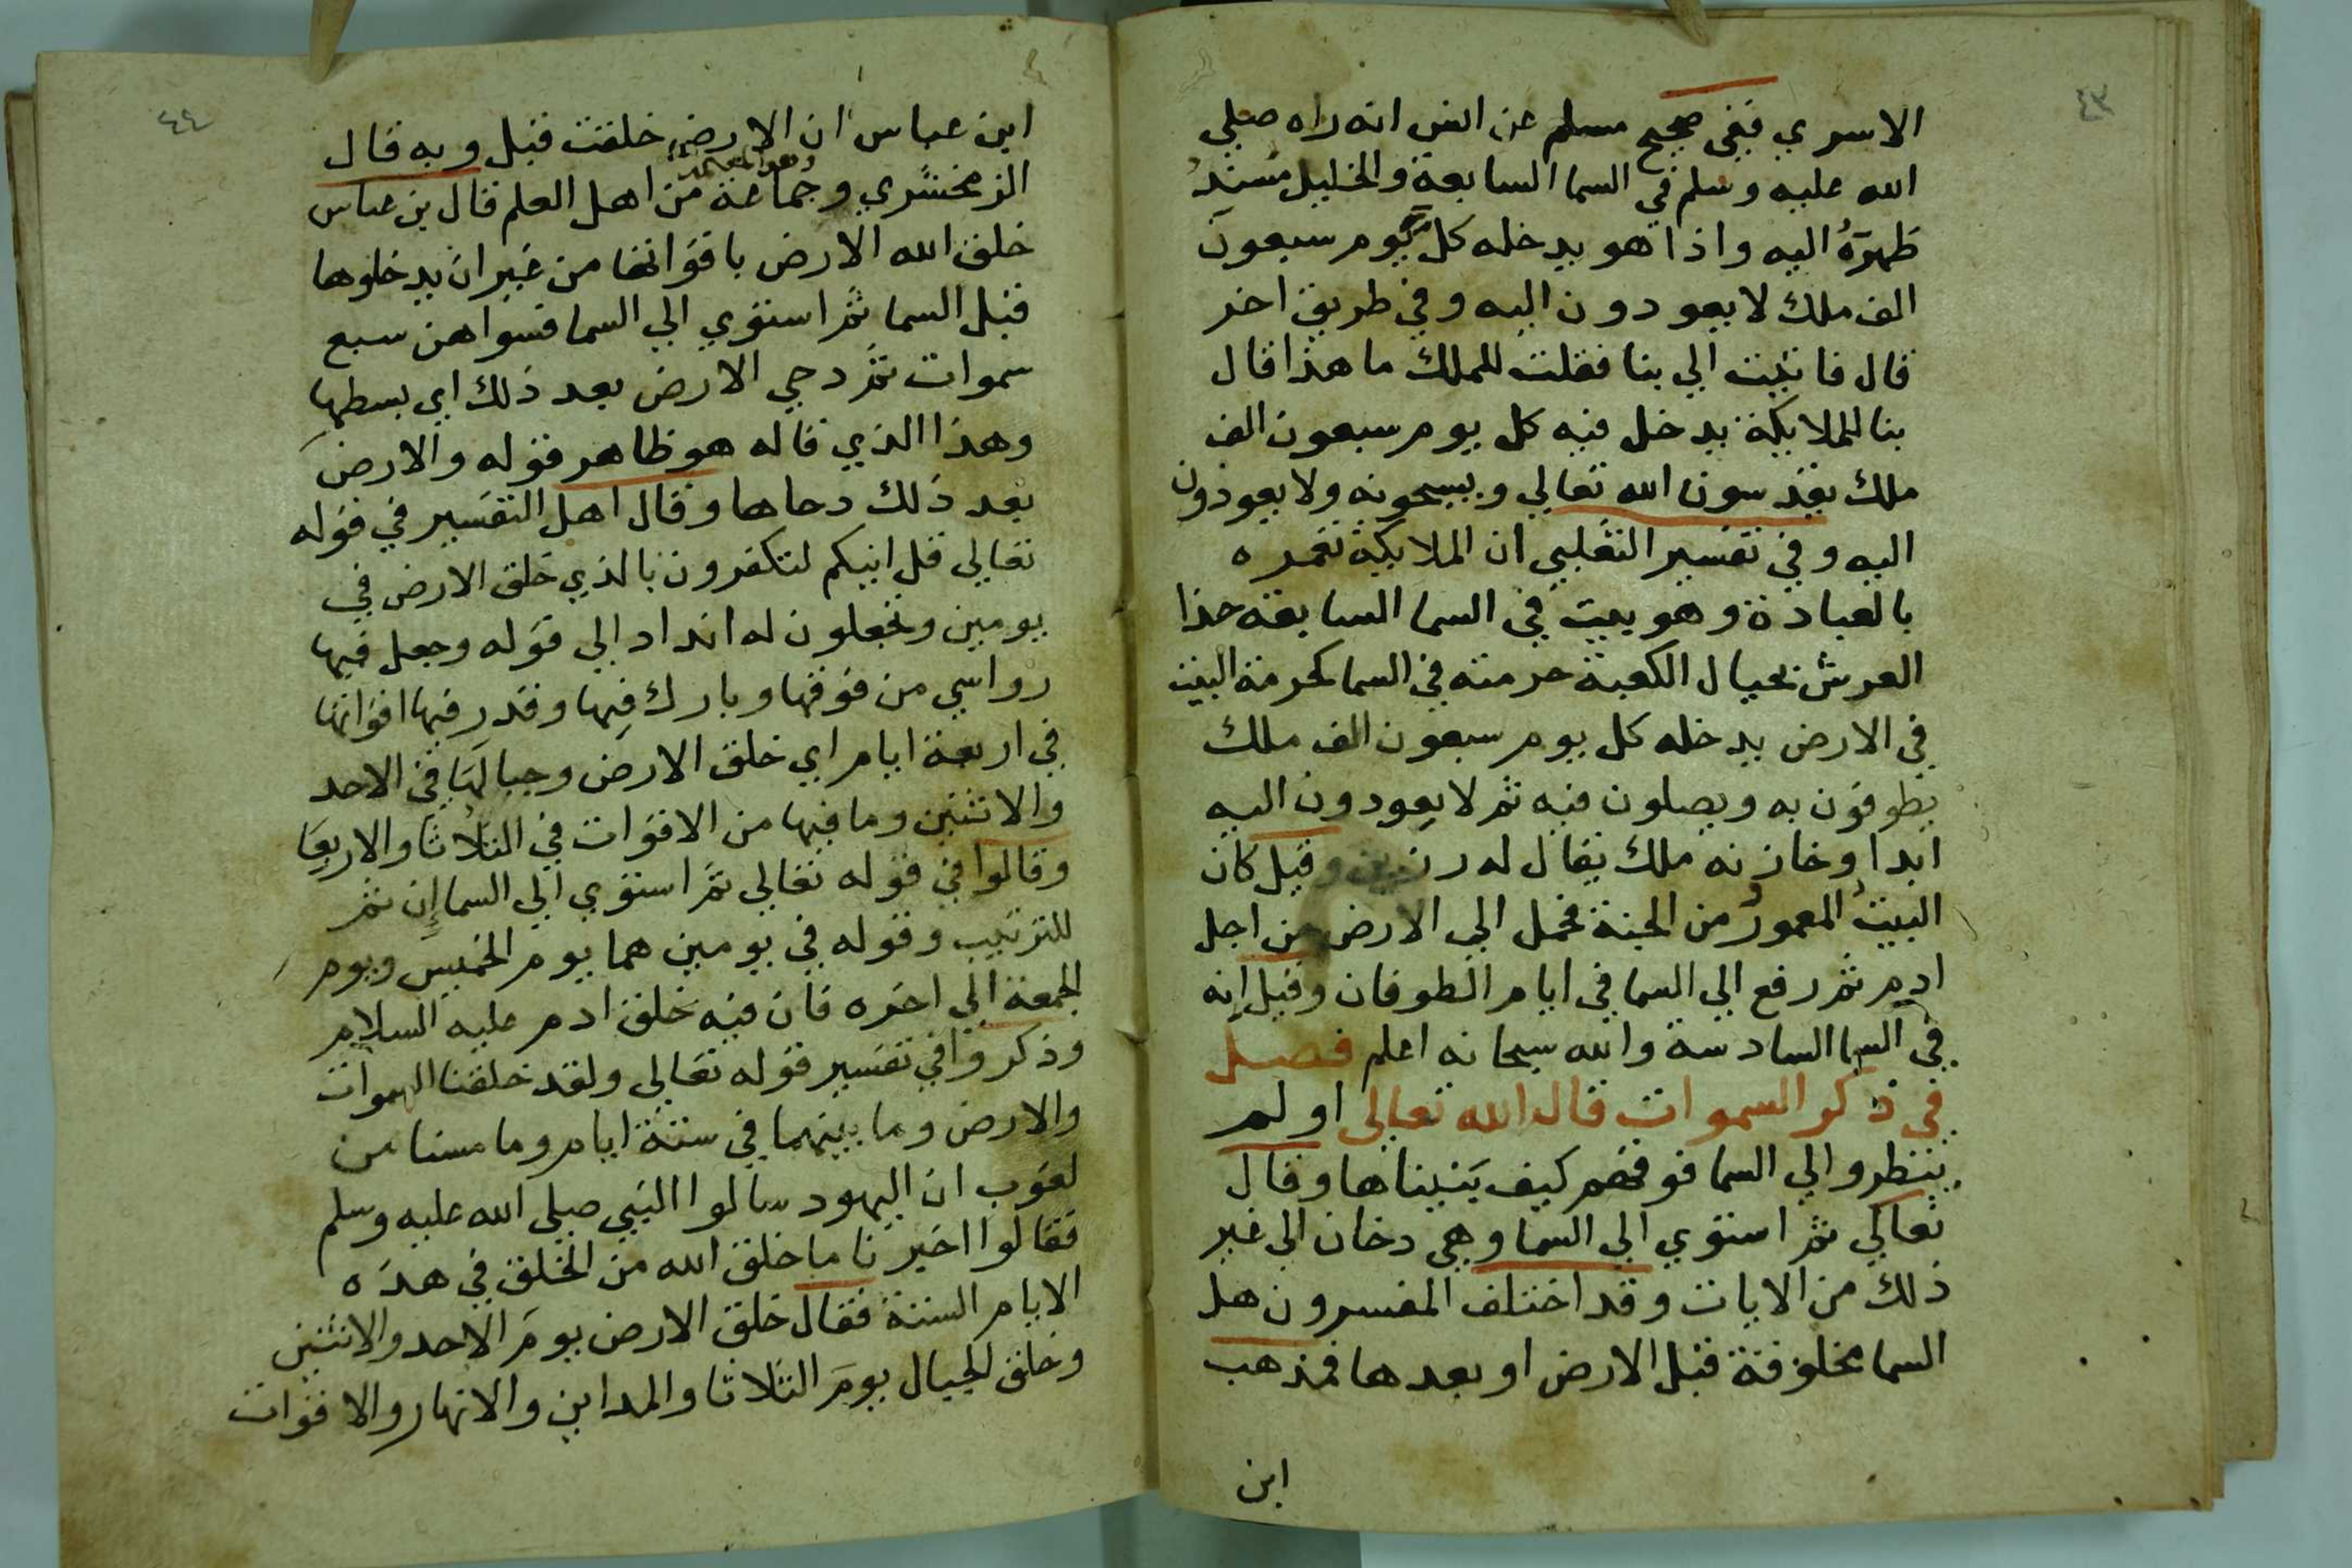 ٤٣
الاسري ففي صحيح مسلم عن انس انه راه صلي
الله عليه وسلم في السما السابعة والخليل مسند
ظهره اليه واذا هو يدخله كل يوم سبعون
الف ملك لا يعودون اليه وفي طريق اخر
قال فاتيت الي بنا فقلت للملك ما هذا قال
بنا للملايكة يدخل فيه كل يوم سبعون الف
ملك يقدسون الله تعالي ويسبحونه ولا يعودون
اليه وفي تفسير الثعلبي ان الملايكة تعمره
بالعبادة وهو بيت في السما السابعة حذا
العرش بحيال الكعبة حرمته في السما كحرمة البيت
في الارض يدخله كل يوم سبعون الف ملك
يطوفون به ويصلون فيه ثم لا يعودون اليه
ابدا وخازنه ملك يقال له رزين وقيل كان
البيت المعمور من الجنة فحمل الي الارض من اجل
ادم ثم رفع الي السما في ايام الطوفان وقيل انه
في السما السادسة والله سبحانه اعلم فصل
في ذكر السموات قال الله تعالي اولم
ينظروا الي السما فوقهم كيف بنيناها وقال
تعالي ثم استوي الي السما وهي دخان الي غير
ذلك من الايات وقد اختلف المفسرون هل
السما مخلوقة قبل الارض او بعدها فمذهب
ابن
٤٤
ابن عباس ان الارض خلقت قبل وبه قال
وهو المعتمد
الزمخشري وجماعة من اهل العلم قال بن عباس
خلق الله الارض باقواتها من غير ان يدخلوها
قبل السما ثم استوي الي السما فسواهن سبع
سموات ثم دحي الارض بعد ذلك اي بسطها
وهذا الذي قاله هو ظاهر قوله والارض
بعد ذلك دحاها وقال اهل التفسير في قوله
تعالي قل اينكم لتكفرون بالذي خلق الارض في
يومين وتجعلون له انداد الي قوله وجعل فيها
رواسي من فوقها وبارك فيها وقدر فيها اقواتها
في اربعة ايام اي خلق الارض وجبالها في الاحد
والاثنين وما فيها من الاقوات في الثلاثا والاربعا
وقالوا في قوله تعالي ثم استوي الي السما إن ثم
للترتيب وقوله في يومين هما يوم الخميس ويوم
الجمعة الي اخره فان فيه خلق ادم عليه السلام
وذكروا في تفسير قوله تعالي ولقد خلقنا السموات
والارض وما بينهما في ستة ايام وما مسنا من
لغوب ان اليهود سالوا النبي صلي الله عليه وسلم
فقالوا اخبرنا ما خلق الله من الخلق في هذه
الايام الستة فقال خلق الارض يوم الاحد والاثنين
وخلق الجبال يوم الثلاثا والمداين والانهار والاقوات